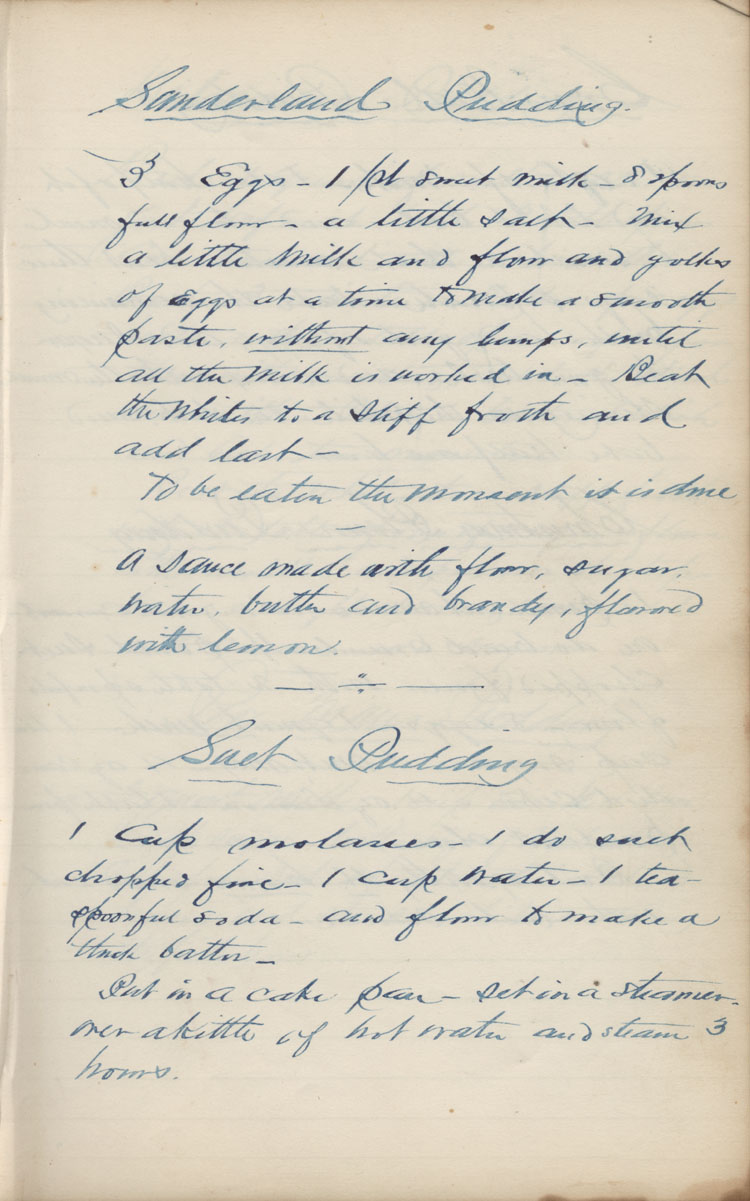 Sanderland Pudding.
3 Eggs - 1 pt sweet milk - 8 spoons
full flour - a little salt - Mix
a little Milk and flour and yolks
of Eggs at a time to make a smooth
paste, without any lumps, until
all the Milk is worked in - Beat
the Whites to a stiff froth and
add last -
To be eaten the moment it is done
A Sauce made with flour, sugar,
water, butter and brandy, flavored
with lemon.
Suet Pudding
1 Cup molasses - 1 do suet
chopped fine - 1 cup water - 1 tea-
spoonful soda - and flour to make a
thick batter -
Put in a cake pan - set in a steamer -
over a kittle of hot water and steam 3
hours.